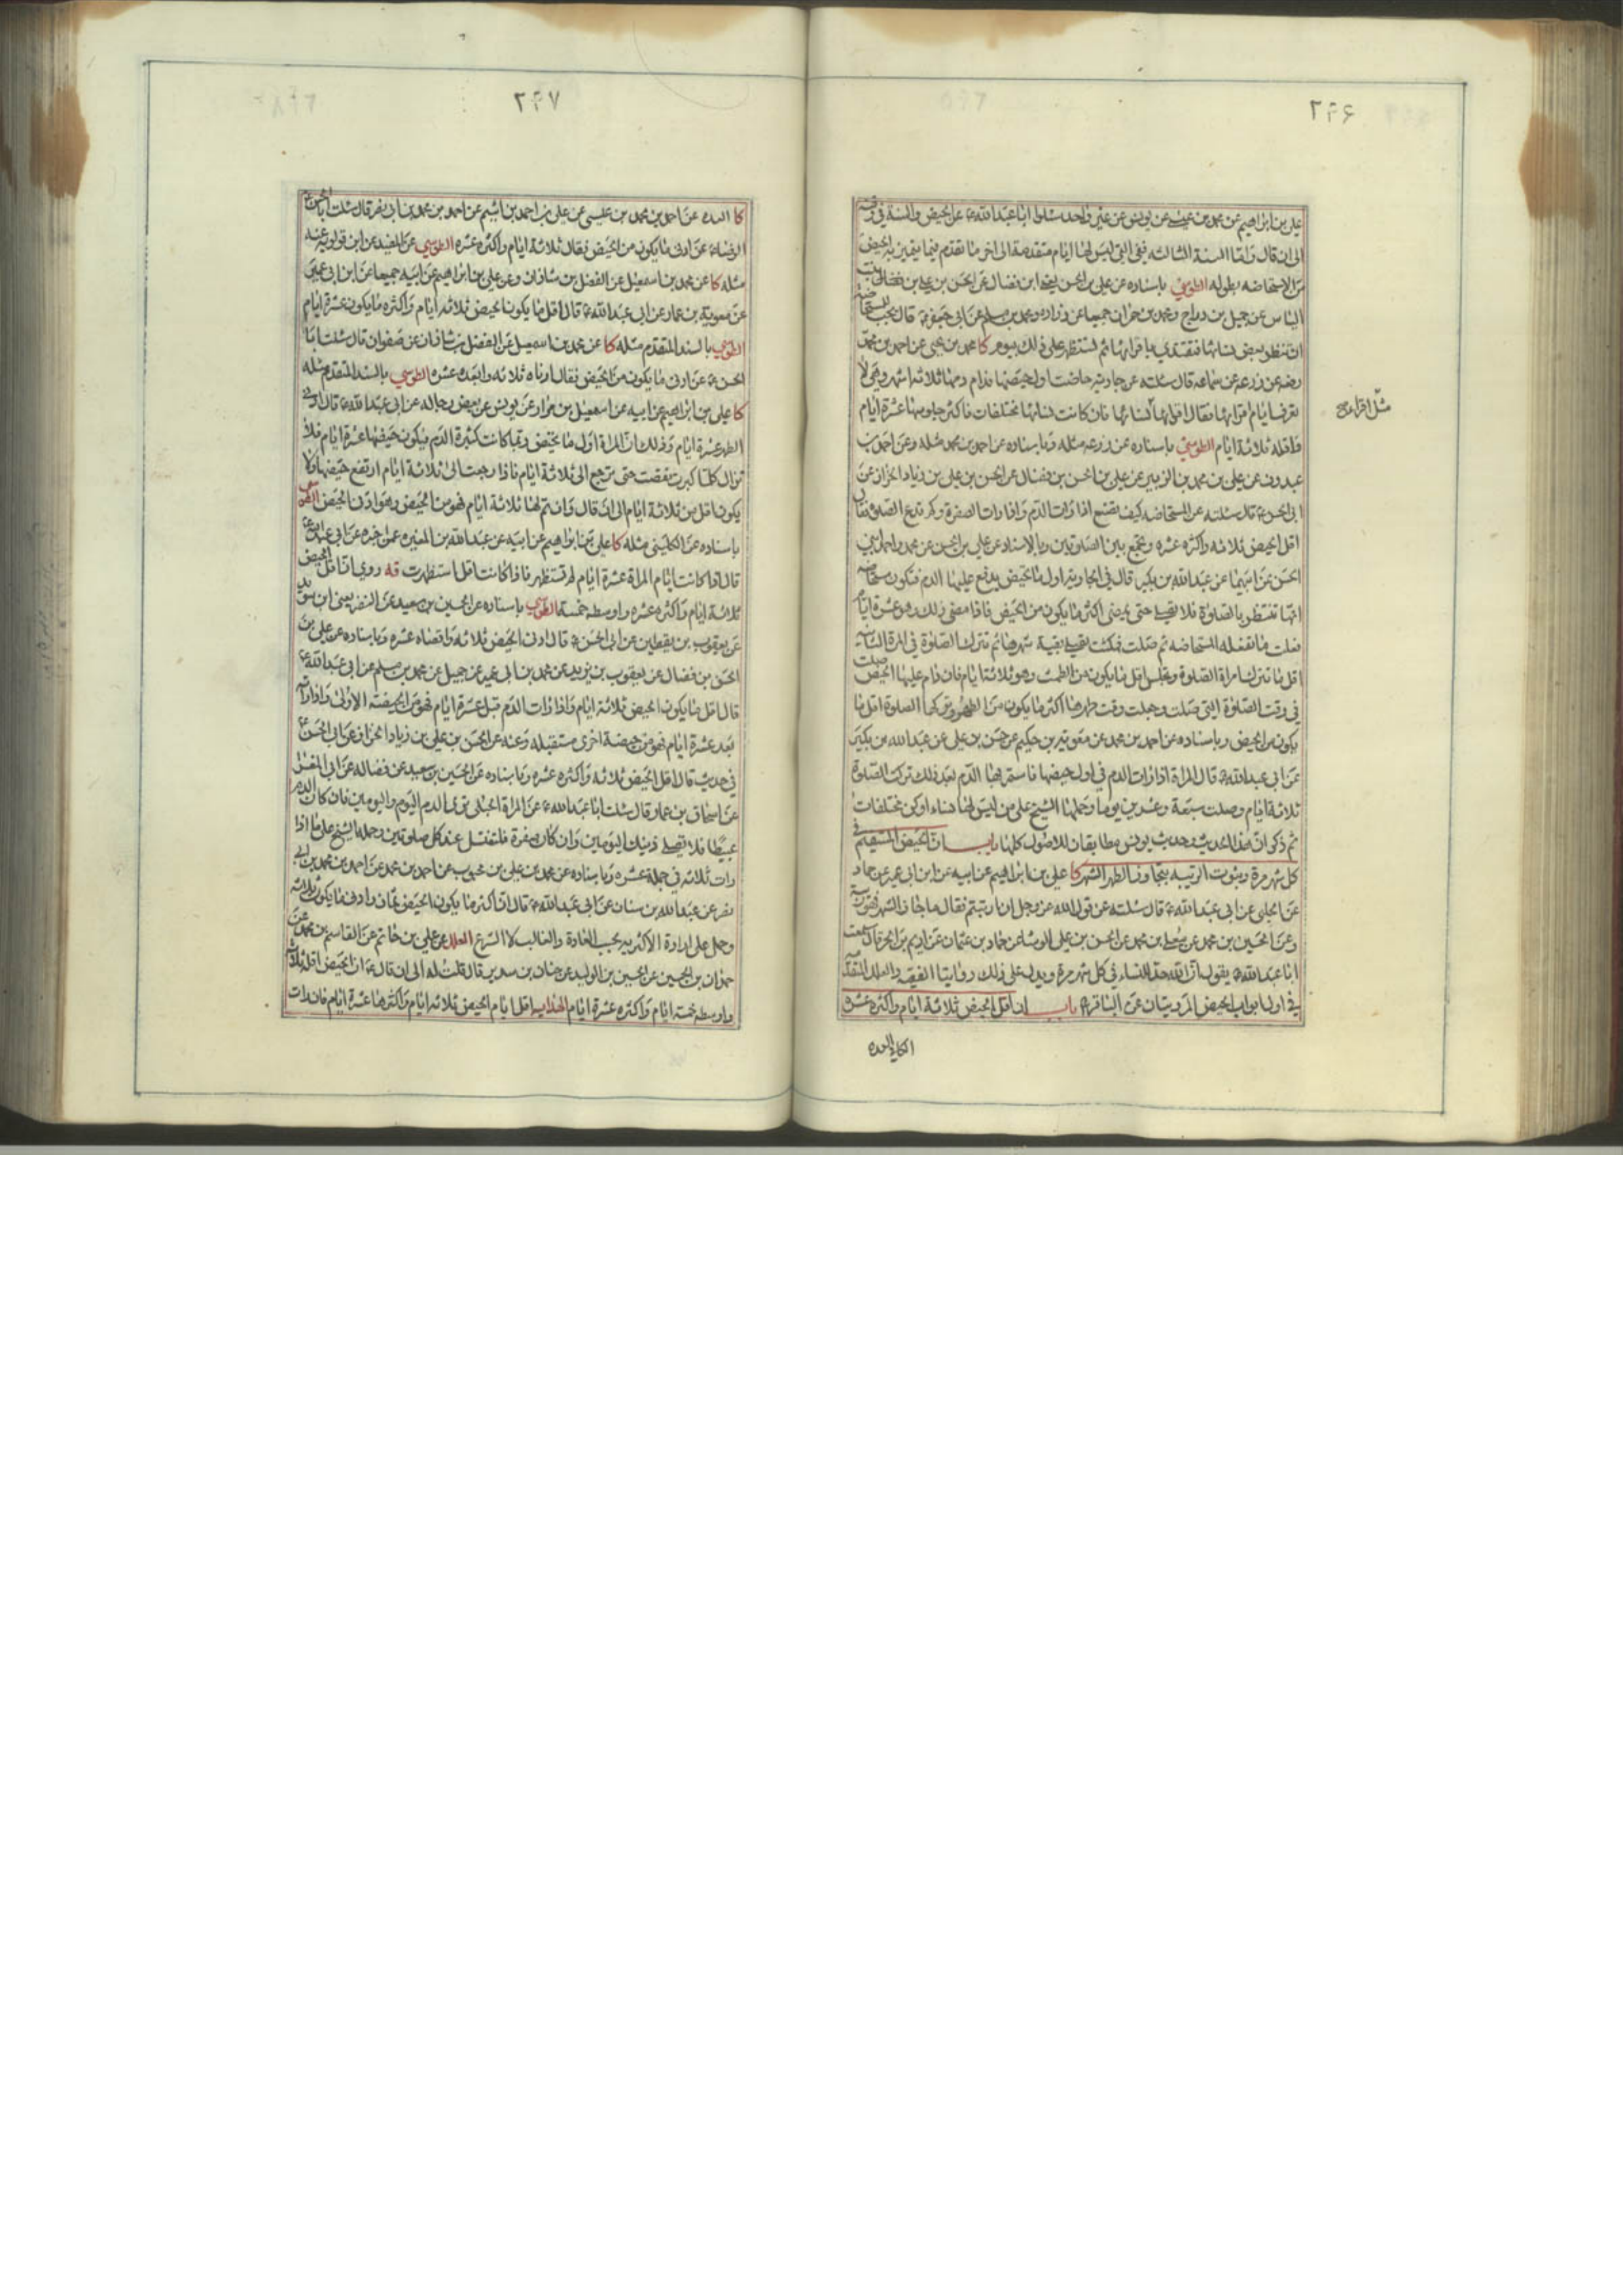 ۲۴۶
علي بن ابراهيم عن محمد بن عيسى عن يونس عن غير واحد سئلوا ابا عبد الله ع عن الحيض والسنة في وقته
الى ان قال واما السنة الثالثة ففي التي ليس لها ايام متقدمة الى اخر ما تقدم فيما يتميز به الحيض
من الاستحاضه بطوله الطوسي باسناده عن علي بن الحسن يعني ابن فضال عن الحسن بن علي بن بنت
الياس عن جميل بن دراج ومحمد بن حمران جميعا عن زراره ومحمد بن مسلم عن ابي جعفر ع قال يجب للمستحاضة
ان تنظر بعض نسائها فتقتدي باقرائها ثم تستظهر على ذلك بيوم كا محمد بن يحيى عن احمد بن محمد
رفعه عن زرعه عن سماعه قال سئلته عن جاريه حاضت اول حيضها فدام دمها ثلاثه اشهر وهي لا
تعرف ايام اقرائها فقال اقراؤها نسائها فان كانت نسائها مختلفات فاكثر جلوسها عشرة ايام
مثل اقراء صح
واقله ثلاثة ايام الطوسي باسناده عن زرعه مثله وباسناده عن احمد بن محمد مثله وعن احمد بن
عبدون عن علي بن محمد بن الزبير عن علي بن الحسن بن فضال عن الحسن بن علي بن زياد الخزاز عن
ابي الحسن ع قال سئلته عن المستحاضه كيف تصنع اذا رات الدم واذا رات الصفرة وكم تدع الصلوة فقال
اقل الحيض ثلاثه واكثره عشره وتجمع بين الصلوتين وبالاسناد عن علي بن الحسن عن محمد واحمد ابني
الحسن عن ابيهما عن عبد الله بن بكير قال في الجاريه اول ما تحيض يدفع عليها الدم فتكون مستحاضه
انها تنتظر بالصلوة فلا تصلي حتى يمضي اكثر ما يكون من الحيض فاذا مضى ذلك وهو عشرة ايام
فعلت ما تفعله المستحاضه ثم صلت فمكثت تصلي بقية شهرها ثم تترك الصلوة في المرة الثانيه
اقل ما تترك امراة الصلوة وتجلس اقل ما يكون من الطمث وهو ثلاثة ايام فان دام عليها الحيض صلت
في وقت الصلوة التي صلت وجعلت وقت طهرها اكثر ما يكون من الطهر وتركها الصلوة اقل ما
يكون من الحيض وباسناده عن احمد بن محمد عن معويه بن حكيم عن حسن بن علي عن عبد الله بن بكير
عن ابي عبد الله ع قال المراة اذا رات الدم في اول حيضها فاستمر بها الدم بعد ذلك تركت الصلوة
ثلاثة ايام وصلت سبعة وعشرين يوما وحملها الشيخ على من ليس لها نساء او كن مختلفات
ثم ذكر ان هذا الحديث وحديث يونس مطابقان للاصول كلها باب ان الحيض المستقيم في
كل شهر مرة وثبوت الريبه بتجاوز الطهر الشهر كا علي بن ابراهيم عن ابيه عن ابن ابي عمير عن حماد
عن الحلبي عن ابي عبد الله ع قال سئلته عن قول الله عز وجل ان ارتبتم فقال ما جاز الشهر فهو ريبة
وعن الحسين بن محمد عن معلى بن محمد عن الحسن بن علي الوشا عن حماد بن عثمان عن اديم بن الحر قال سمعت
ابا عبد الله ع يقول ان الله حد للنساء في كل شهر مرة ويدل على ذلك روايتا الفقيه والعلل المتقدمة
في اول ابواب الحيض المرويتان عن الباقر ع باب ان اقل الحيض ثلاثة ايام واكثره عشرة
الكافي العده
۲۴۷
كا العده عن احمد بن محمد بن عيسى عن علي بن احمد بن اشيم عن احمد بن محمد بن ابي نصر قال سئلت ابا الحسن
الرضا ع عن ادنى ما يكون من الحيض فقال ثلاثة ايام واكثره عشره الطوسي عن المفيد عن ابن قولويه عنه
مثله كا عن محمد بن اسمعيل عن الفضل بن شاذان وعن علي بن ابراهيم عن ابيه جميعا عن ابن ابي عمير
عن معوية بن عمار عن ابي عبد الله ع قال اقل ما يكون الحيض ثلاثه ايام واكثره ما يكون عشرة ايام
الطوسي بالسند المتقدم مثله كا عن محمد بن اسمعيل عن الفضل بن شاذان عن صفوان قال سئلت ابا
الحسن ع عن ادنى ما يكون من الحيض فقال ادناه ثلاثه وابعده عشره الطوسي بالسند المتقدم مثله
كا علي بن ابراهيم عن ابيه عن اسمعيل بن مرار عن يونس عن بعض رجاله عن ابي عبد الله ع قال ادنى
الطهر عشرة ايام وذلك ان المراة اول ما تحيض ربما كانت كثيرة الدم فيكون حيضها عشرة ايام فلا
تزال كلما كبرت نقصت حتى ترجع الى ثلاثة ايام فاذا رجعت الى ثلاثة ايام ارتفع حيضها ولا
يكون اقل من ثلاثة ايام الى ان قال وان تم لها ثلاثة ايام فهو من الحيض وهو ادنى الحيض الطوسي
باسناده عن الكليني مثله كا علي بن ابراهيم عن ابيه عن عبد الله بن المغيره عمن اخبره عن ابي عبد الله ع
قال اذا كانت ايام المراة عشرة ايام لم تستظهر فاذا كانت اقل استظهرت قه روي ان اقل الحيض
ثلاثة ايام واكثره عشره واوسطه خمسة الطوسي باسناده عن الحسين بن سعيد عن النضر يعني ابن سويد
عن يعقوب بن يقطين عن ابي الحسن ع قال ادنى الحيض ثلاثه واقصاه عشره وباسناده عن علي بن
الحسن بن فضال عن يعقوب بن يزيد عن محمد بن ابي عمير عن جميل عن محمد بن مسلم عن ابي عبد الله ع
قال اقل ما يكون الحيض ثلاثة ايام واذا رات الدم قبل عشرة ايام فهو من الحيضة الاولى واذا راته
بعد عشرة ايام فهو من حيضة اخرى مستقبله وعنه عن الحسن بن علي بن زياد الخزاز عن ابي الحسن ع
في حديث قال اقل الحيض ثلاثه واكثره عشره وباسناده عن الحسين بن سعيد عن فضاله عن ابي المغرا
عن اسحاق بن عمار قال سئلت ابا عبد الله ع عن المراة الحبلى ترى الدم اليوم واليومين فان كان الدم
عبيطا فلا تصلي ذينك اليومين وان كان صفرة فلتغتسل عند كل صلوتين وحمله الشيخ على ما اذا
رات ثلاثه في جملة عشره وباسناده عن محمد بن علي بن محبوب عن احمد بن محمد عن احمد بن محمد بن ابي
نصر عن عبد الله بن سنان عن ابي عبد الله ع قال ان اكثر ما يكون الحيض ثمان وادنى ما يكون ثلاثه
وحمل على ارادة الاكثريه بحسب العادة والغالب لا الشرع العلل عن علي بن حاتم عن القاسم بن محمد عن
حمدان بن الحسين عن الحسين بن الوليد عن حنان بن سدير قال قلت له الى ان قال ع ان الحيض اقله ثلاثة
واوسطه خمسة ايام واكثره عشرة ايام الهدايه اقل ايام الحيض ثلاثه ايام واكثرها عشرة ايام فان رات